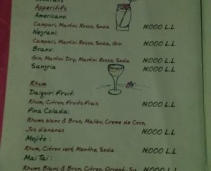 Apperitifs
Americano:
Campari, Martini Rosso, Soda N000 L.L
Negroni:
Campari, Martini Rosso, Soda, Gin N000 L.L
Bronx:
Gin, Martini Dry, Martini Rosso, Soda N000 L.L
Sangria N000 L.L
Rhum
Daiquiri Fruit:
Rhum, Citron, Fruits Frais N000 L.L
Pina Colada:
Rhums blanc & Brun, Malibu, Creme de Coco,
Jus d'ananas N000 L.L
Mojito:
Rhum, Citron vert, Menthe, Soda N000 L.L
Mai Tai:
Rhums Blanc & Brun, Citron, Orgeat, Jus N000 L.L